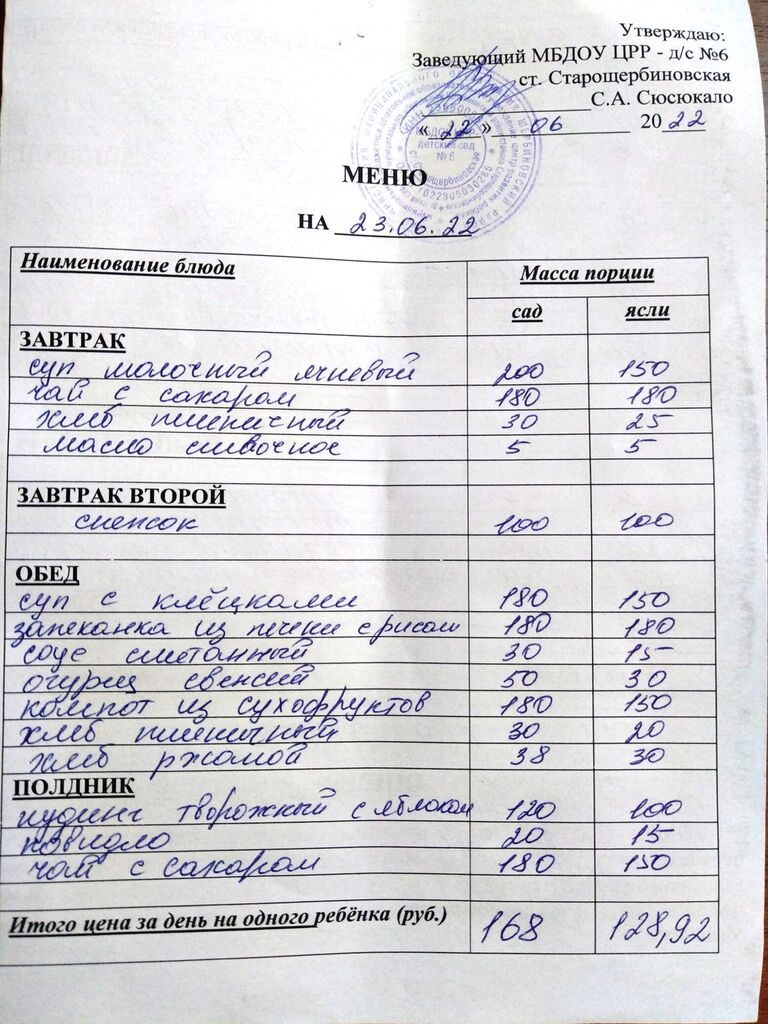 Утверждаю:
Заведующий МБДОУ ЦРР - д/с №6
ст. Старощербиновская
С.А. Сюсюкало
« 22 » 06 20 22
МБДОУ
детский сад
№ 6
1022305030285
МЕНЮ
НА 23.06.22
Наименование блюда Масса порции
сад ясли
ЗАВТРАК
суп молочный ячневый 200 150
чай с сахаром 180 180
хлеб пшеничный 30 25
масло сливочное 5 5
ЗАВТРАК ВТОРОЙ
снежок 100 100
ОБЕД
суп с клёцками 180 150
запеканка из печени с рисом 180 180
соус сметанный 30 15
огурец свежий 50 30
компот из сухофруктов 180 150
хлеб пшеничный 30 20
хлеб ржаной 38 30
ПОЛДНИК
пудинг творожный с яблоком 120 100
повидло 20 15
чай с сахаром 180 150
Итого цена за день на одного ребёнка (руб.) 168 128,92